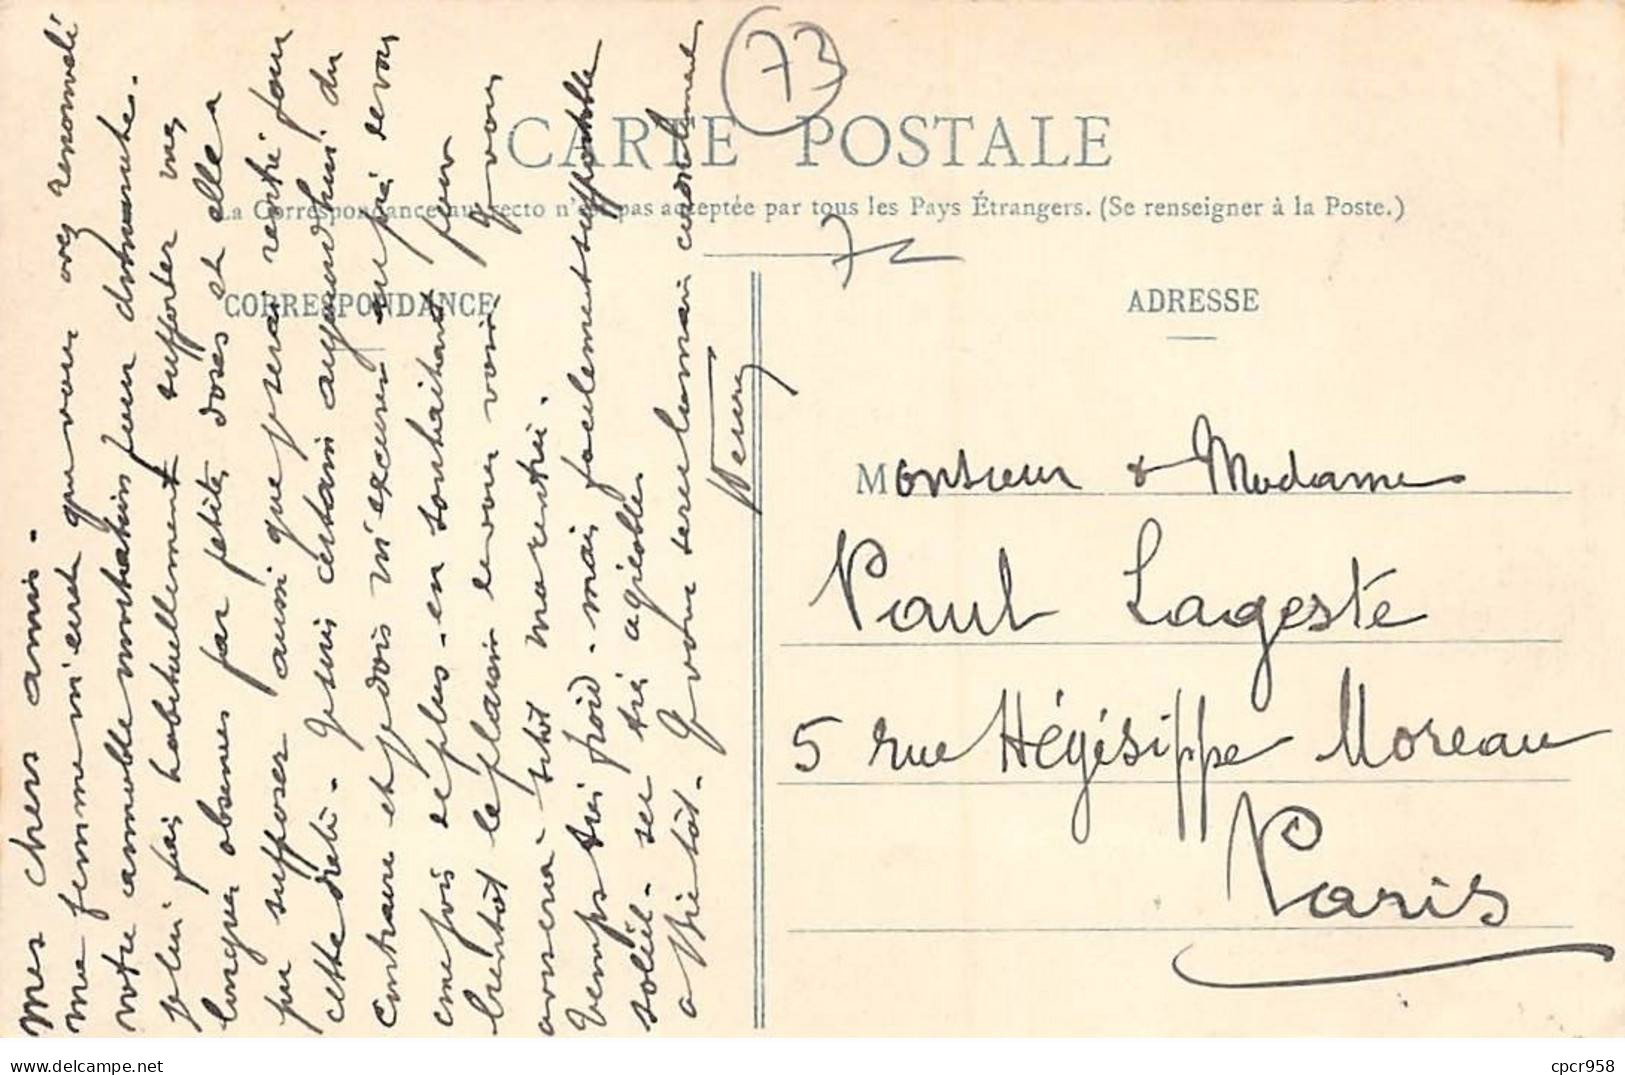 73
CARTE POSTALE
La Correspondance au recto n'est pas acceptée par tous les Pays Étrangers. (Se renseigner à la Poste.)
72
CORRESPONDANCE
ADRESSE
Mes chers amis.
Ma femme m'écrit que vous avez renouvelé
votre aimable invitation pour dimanche.
je lui fais habituellement supporter mes
longues absences par petites doses et elle a
pu supposer ainsi que je serai rentré pour
cette date. Je suis certain aujourd'hui du
contraire et je dois m'excuser auprès de vous
une fois de plus - en souhaitant pouvoir
bientôt le plaisir de vous voir, vous
aussitôt ma rentrée.
Temps très froid. mais facilement supportable
soleil. sec très agréable.
A bientôt. Je vous serre la main cordialement
Henry
Monsieur & Madame
Paul Lageste
5 rue Hégésippe Moreau
Paris
Tous droits réservés pour tous pays
cpcr958